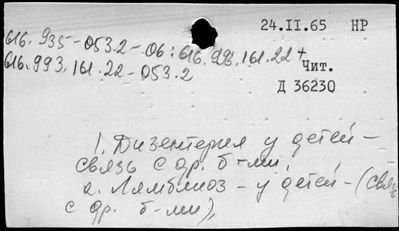 24.II.65 НР
616.935-053.2-06:616.993.161.22+
616.993.161.22-053.2
Чит.
Д 36230
1. Дизентерия у детей -
связь с др. б-ми,
2. Лямблиоз - у детей - (связь
с др. б-ми),